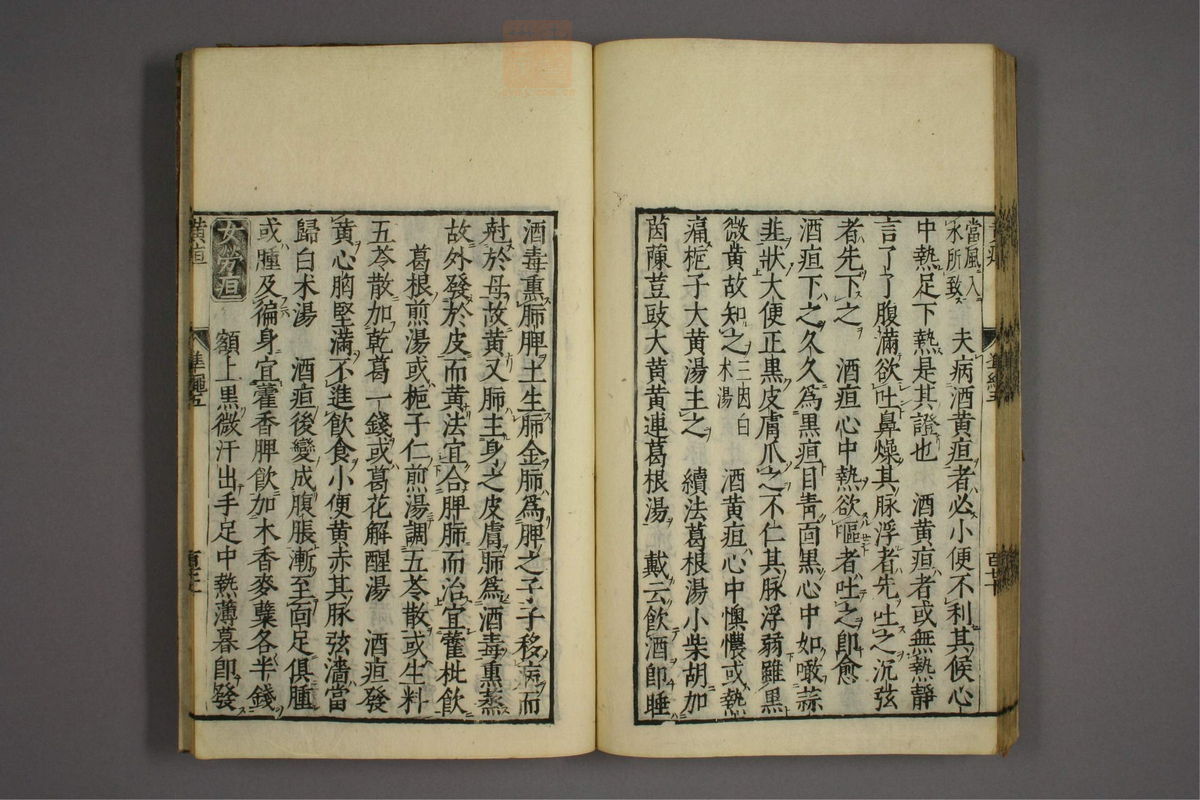 當風入
水所致
夫病酒黃疸者必小便不利其候心
中熱足下熱是其證也　酒黃疸者或無熱靜
言了了腹滿欲吐鼻燥其脉浮者先吐之沉弦
者先下之　酒疸心中熱欲嘔者吐之卽愈
酒疸下之久久爲黑疸目靑面黑心中如噉蒜
韭狀大便正黑皮膚爪之不仁其脉浮弱雖黑
微黃故知之
三因白
术湯
酒黃疸心中懊憹或熱
痛梔子大黃湯主之　續法葛根湯小柴胡加
茵蔯荳豉大黃黃連葛根湯　戴云飮酒卽睡
酒毒熏肺脾土生肺金肺爲脾之子子移病而
尅於母故黃又肺主身之皮膚肺爲酒毒熏蒸
故外發於皮而黃法宜合脾肺而治宜藿枇飮
葛根煎湯或梔子仁煎湯調五苓散或生料
五苓散加乾葛一錢或葛花解醒湯　酒疸發
黃心胸堅滿不進飮食小便黃赤其脉弦濇當
歸白术湯　酒疸後變成腹脹漸至面足俱腫
或腫及徧身宜藿香脾飮加木香麥蘗各半錢
女勞疸　額上黑微汗出手足中熱薄暮卽發
黃疸　準繩五